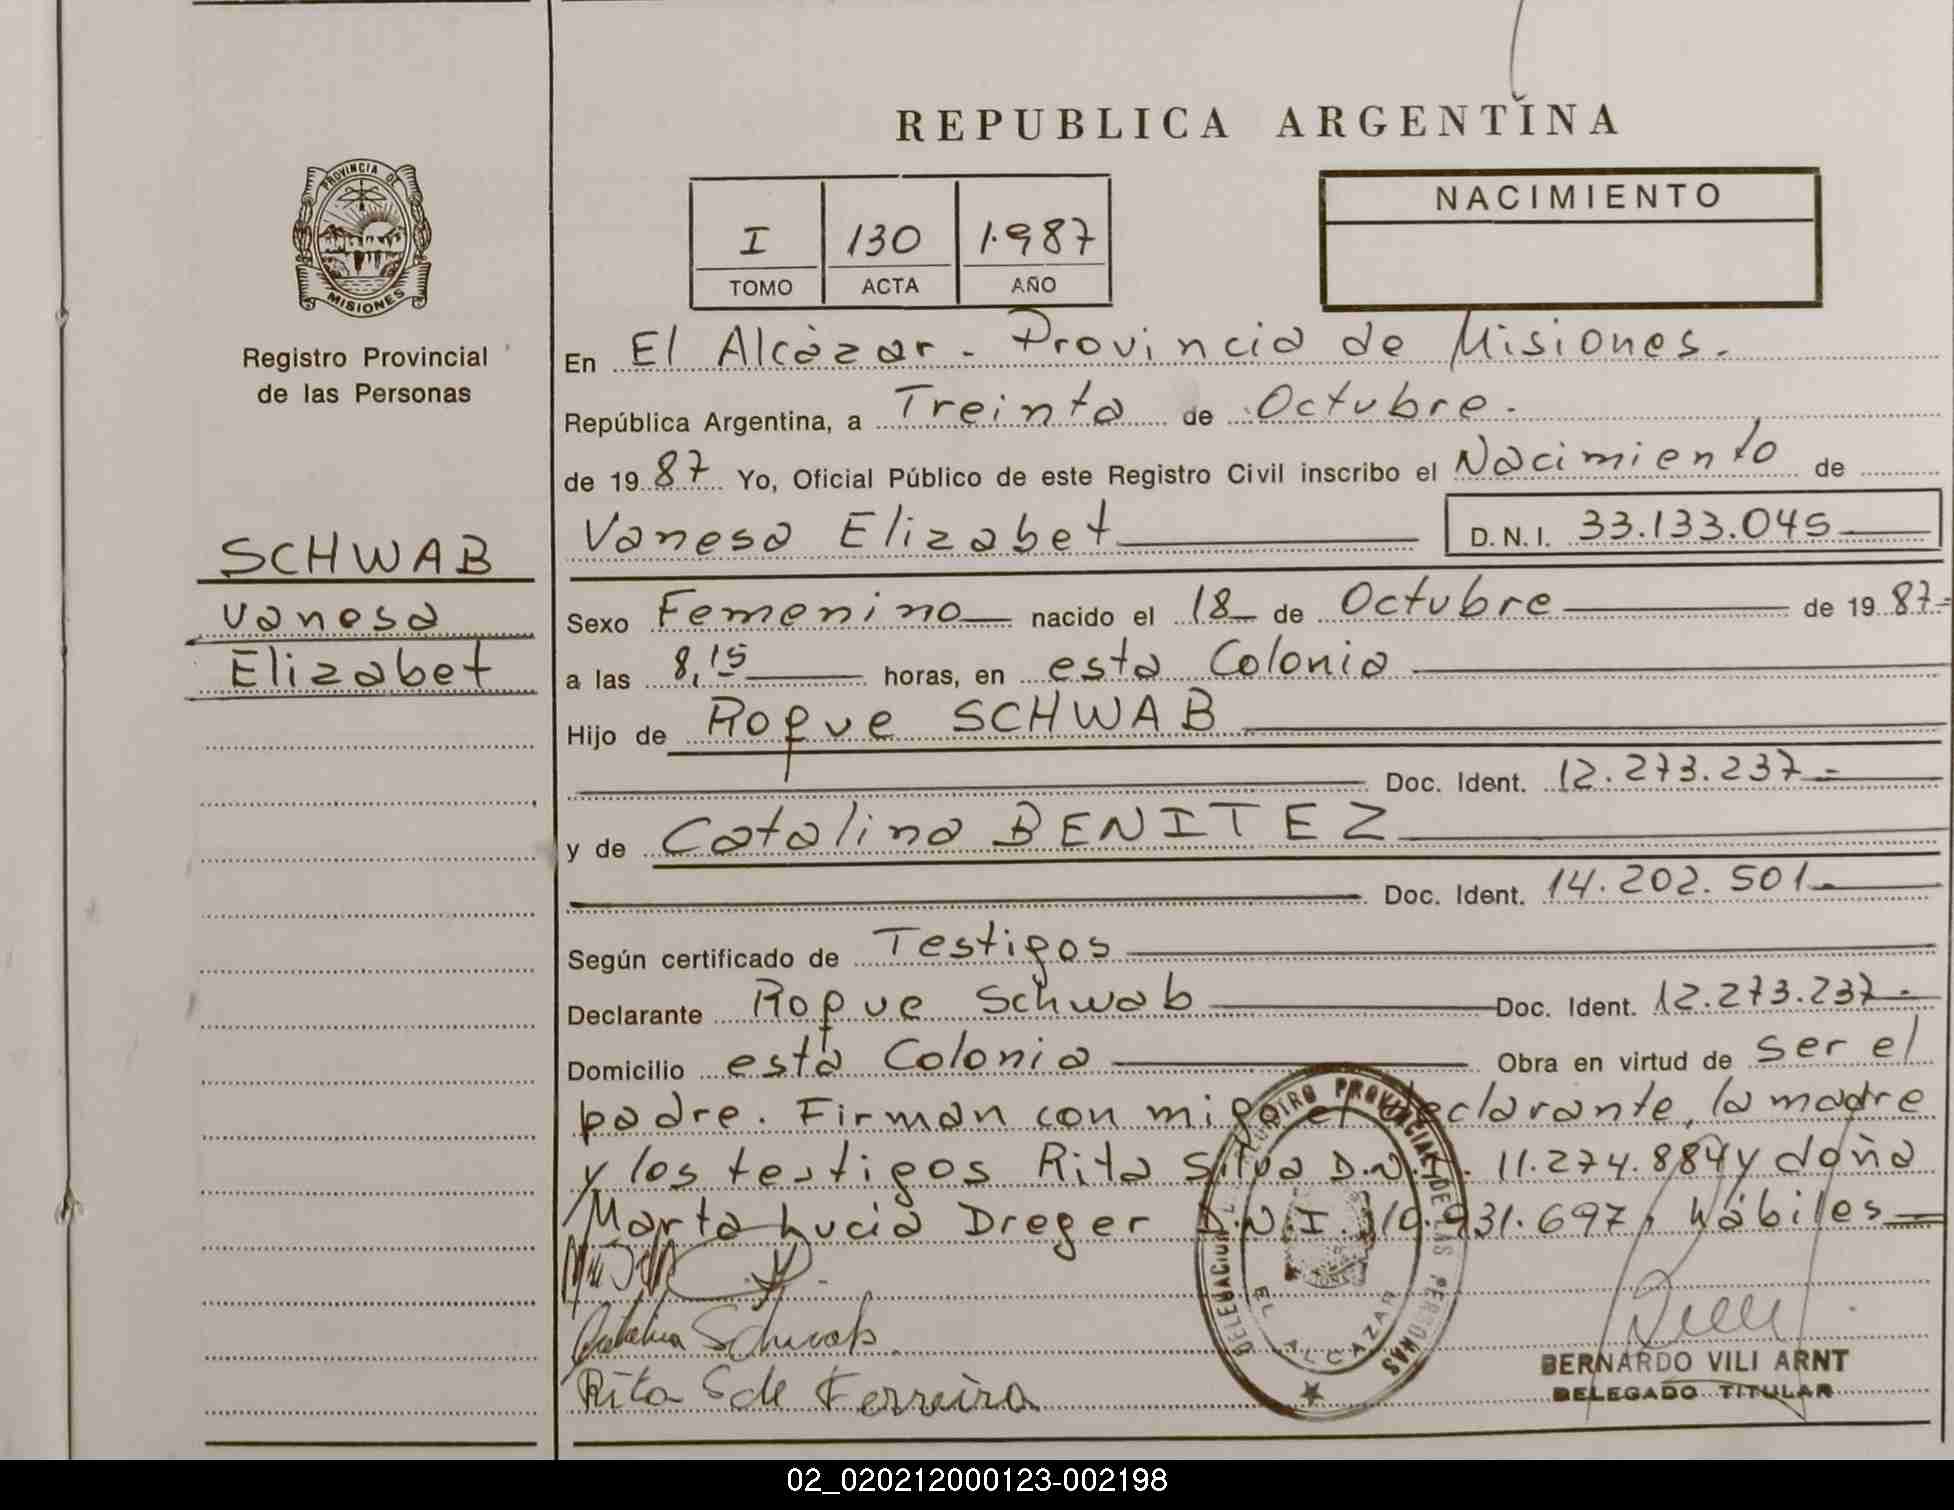 REPUBLICA ARGENTINA
PROVINCIA DE MISIONES
Registro Provincial
de las Personas
I 130 1.987
TOMO ACTA AÑO
NACIMIENTO
En El Alcázar - Provincia de Misiones.
República Argentina, a Treinta de Octubre.
de 1987 Yo, Oficial Público de este Registro Civil inscribo el Nacimiento de
Vanesa Elizabet D.N.I. 33.133.045
SCHWAB
Vanesa
Elizabet
Sexo Femenino nacido el 18 de Octubre de 1987
a las 8,15 horas, en esta Colonia
Hijo de Roque SCHWAB
Doc. Ident. 12.273.237
y de Catalina BENITEZ
Doc. Ident. 14.202.501
Según certificado de Testigos
Declarante Roque Schwab Doc. Ident. 12.273.237
Domicilio esta Colonia Obra en virtud de ser el
padre. Firman con migo el declarante, la madre
y los testigos Rita Silva D.N.I. 11.274.884 y doña
Marta Lucia Dreger D.N.I. 10.931.697, Hábiles
Catalina Schwab
Rita S de Ferreira
DELEGACION REGISTRO PROVINCIAL DE LAS PERSONAS
EL ALCAZAR
BERNARDO VILI ARNT
DELEGADO TITULAR
02_020212000123-002198